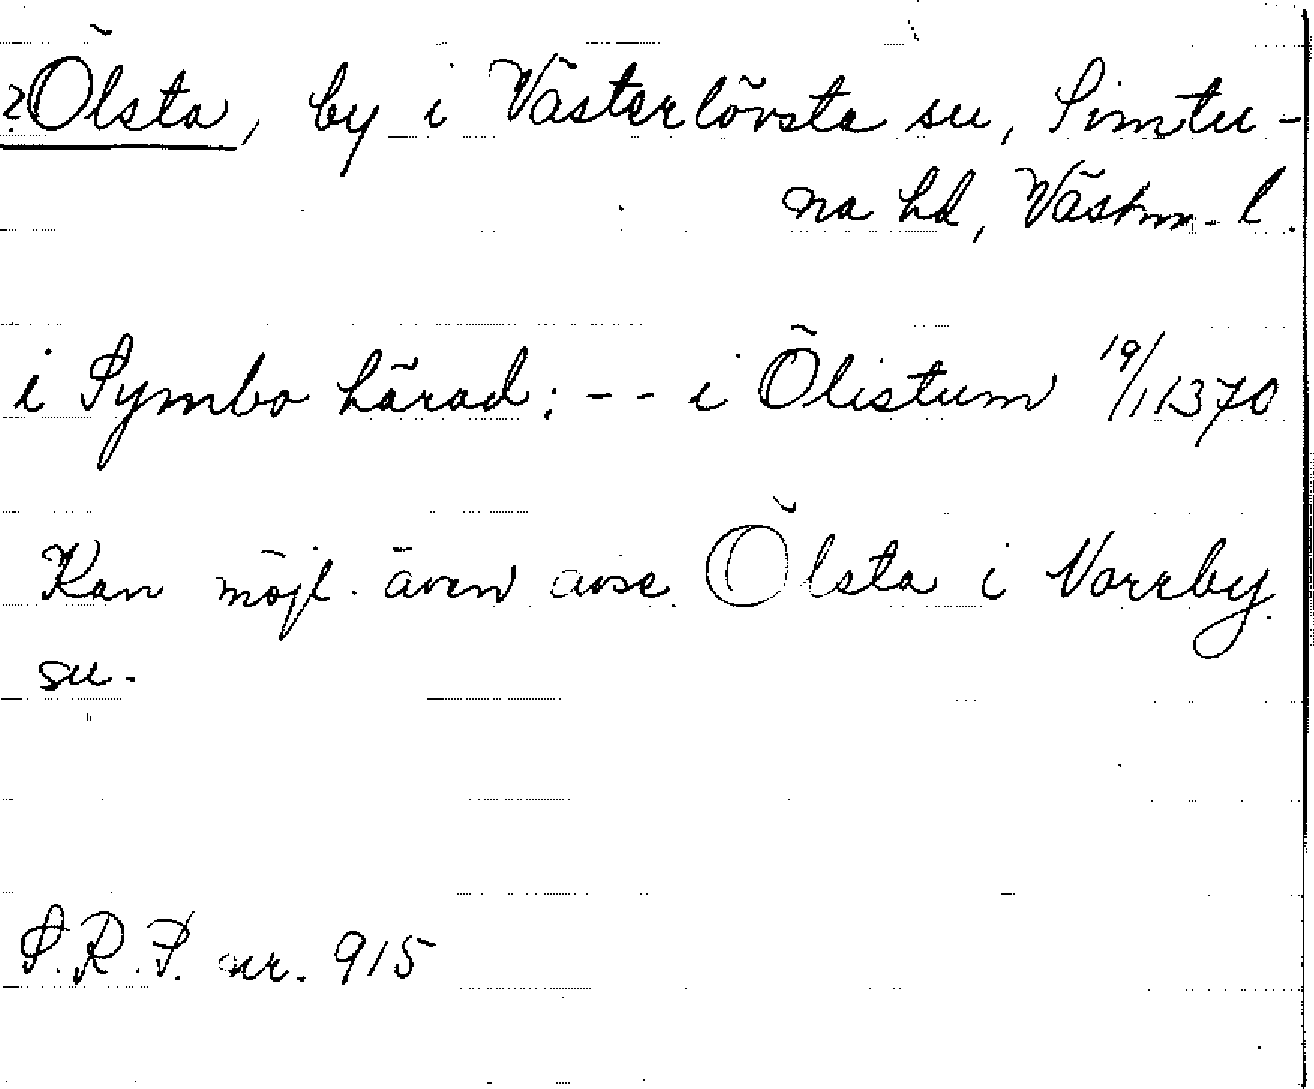 ?Ölsta, by i Västerlövsta sn, Simtu-
na hd, Västm. l.
i Symbo härad: -- i Ölistum 19/1 1370
Kan möjl. även avse Ölsta i Norrby
sn.
S.R.P. nr. 915